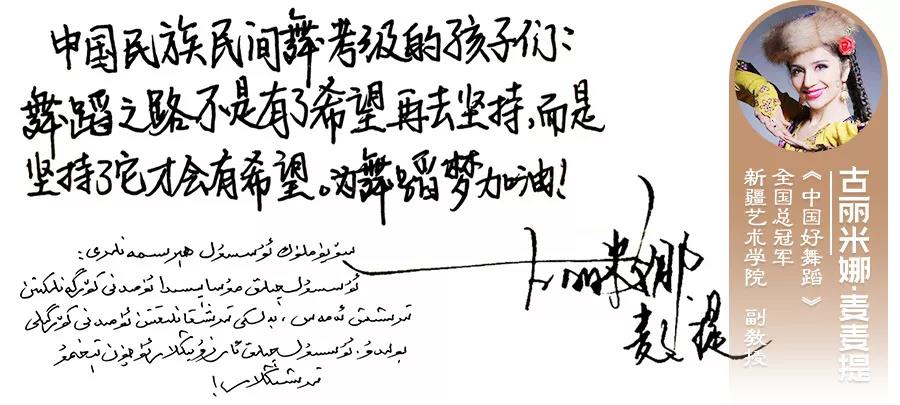 中国民族民间舞考级的孩子们：
舞蹈之路不是有了希望再去坚持，而是
坚持了它才会有希望。为舞蹈梦加油！
سۆيۈملۈك ئۇسسۇل ھەۋەسمەنلىرى:
ئۇسسۇلچىلىق مۇساپىسىدا ئۈمىدنى كۆرگەنلىكتىن
تىرىشىش ئەمەس ، بەلكى تىرىشقانلىقتىن ئۈمىدنى كۆرگىلى
بولىدۇ. ئۇسسۇلچىلىق ئارزۇيىڭلار ئۈچۈن تېخىمۇ
تىرىشىڭلار!
古丽米娜
麦麦提
古丽米娜·麦麦提
《中国好舞蹈》
全国总冠军
新疆艺术学院 副教授